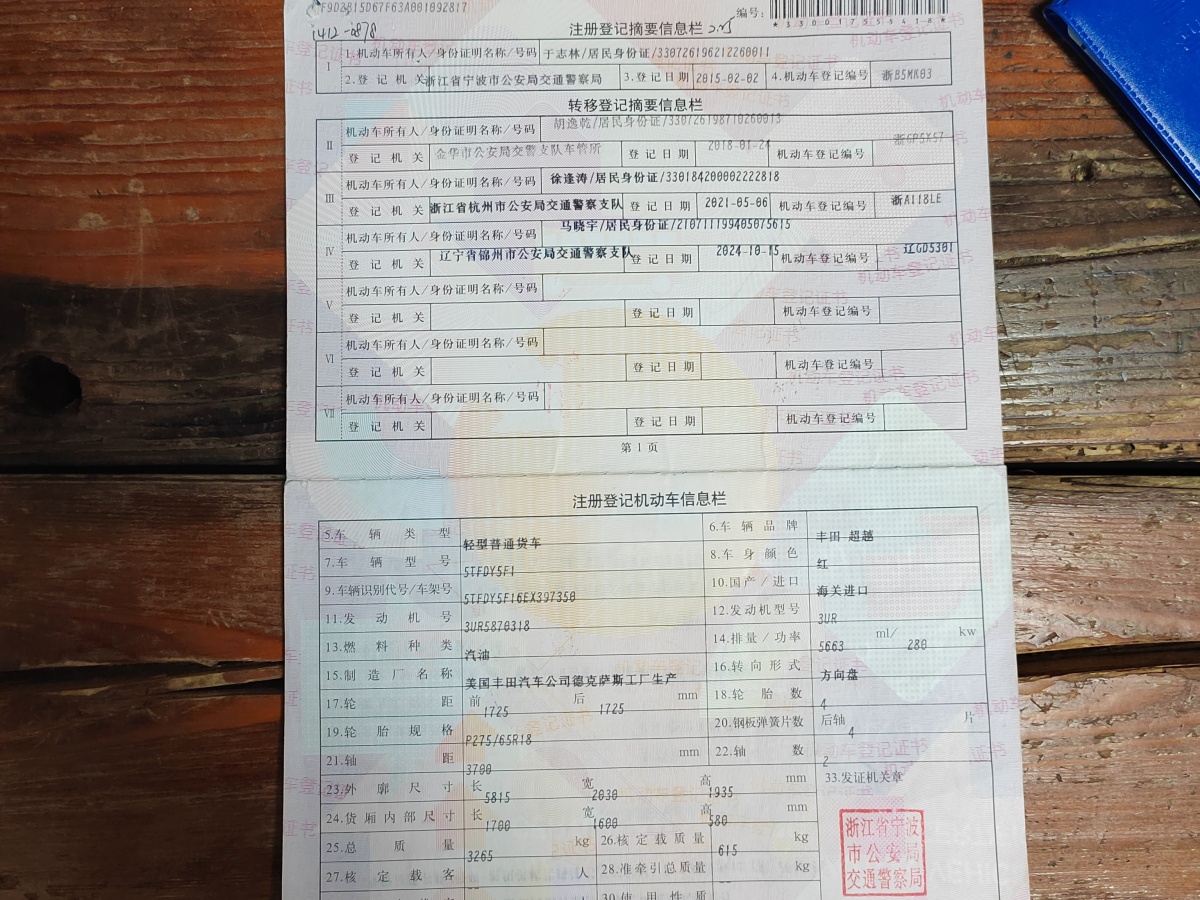 F9D2815D67F63A001092817
编号:
*330017555418*
注册登记摘要信息栏
I
1.机动车所有人/身份证明名称/号码 于志林/居民身份证/330726196212260011
2.登记机关 浙江省宁波市公安局交通警察局 3.登记日期 2015-02-02 4.机动车登记编号 浙B5MK03
转移登记摘要信息栏
II
机动车所有人/身份证明名称/号码 胡逸乾/居民身份证/330726198710260013
登记机关 金华市公安局交警支队车管所 登记日期 2018-01-24 机动车登记编号 浙GP5X57
III
机动车所有人/身份证明名称/号码 徐逢涛/居民身份证/330184200002222818
登记机关 浙江省杭州市公安局交通警察支队 登记日期 2021-05-06 机动车登记编号 浙A118LE
IV
机动车所有人/身份证明名称/号码 马晓宇/居民身份证/210711199405075615
登记机关 辽宁省锦州市公安局交通警察支队 登记日期 2024-10-15 机动车登记编号 辽GD5301
V
机动车所有人/身份证明名称/号码
登记机关 登记日期 机动车登记编号
VI
机动车所有人/身份证明名称/号码
登记机关 登记日期 机动车登记编号
VII
机动车所有人/身份证明名称/号码
登记机关 登记日期 机动车登记编号
第1页
注册登记机动车信息栏
5.车辆类型 轻型普通货车 6.车辆品牌 丰田 超越
7.车辆型号 5TFDY5F1 8.车身颜色 红
9.车辆识别代号/车架号 5TFDY5F16EX397350 10.国产/进口 海关进口
11.发动机号 3UR5870318 12.发动机型号 3UR
13.燃料种类 汽油 14.排量/功率 5663 ml/ 280 kw
15.制造厂名称 美国丰田汽车公司德克萨斯工厂生产 16.转向形式 方向盘
17.轮距 前 1725 后 1725 mm 18.轮胎数 4
19.轮胎规格 P275/65R18 20.钢板弹簧片数 后轴 4 片
21.轴距 3700 mm 22.轴数 2
23.外廓尺寸 长 5815 宽 2030 高 1935 mm 33.发证机关章
24.货厢内部尺寸 长 1700 宽 1600 高 580 mm
25.总质量 3265 kg 26.核定载质量 615 kg
27.核定载客 人 28.准牵引总质量 kg
30.使用性质
浙江省宁波
市公安局
交通警察局